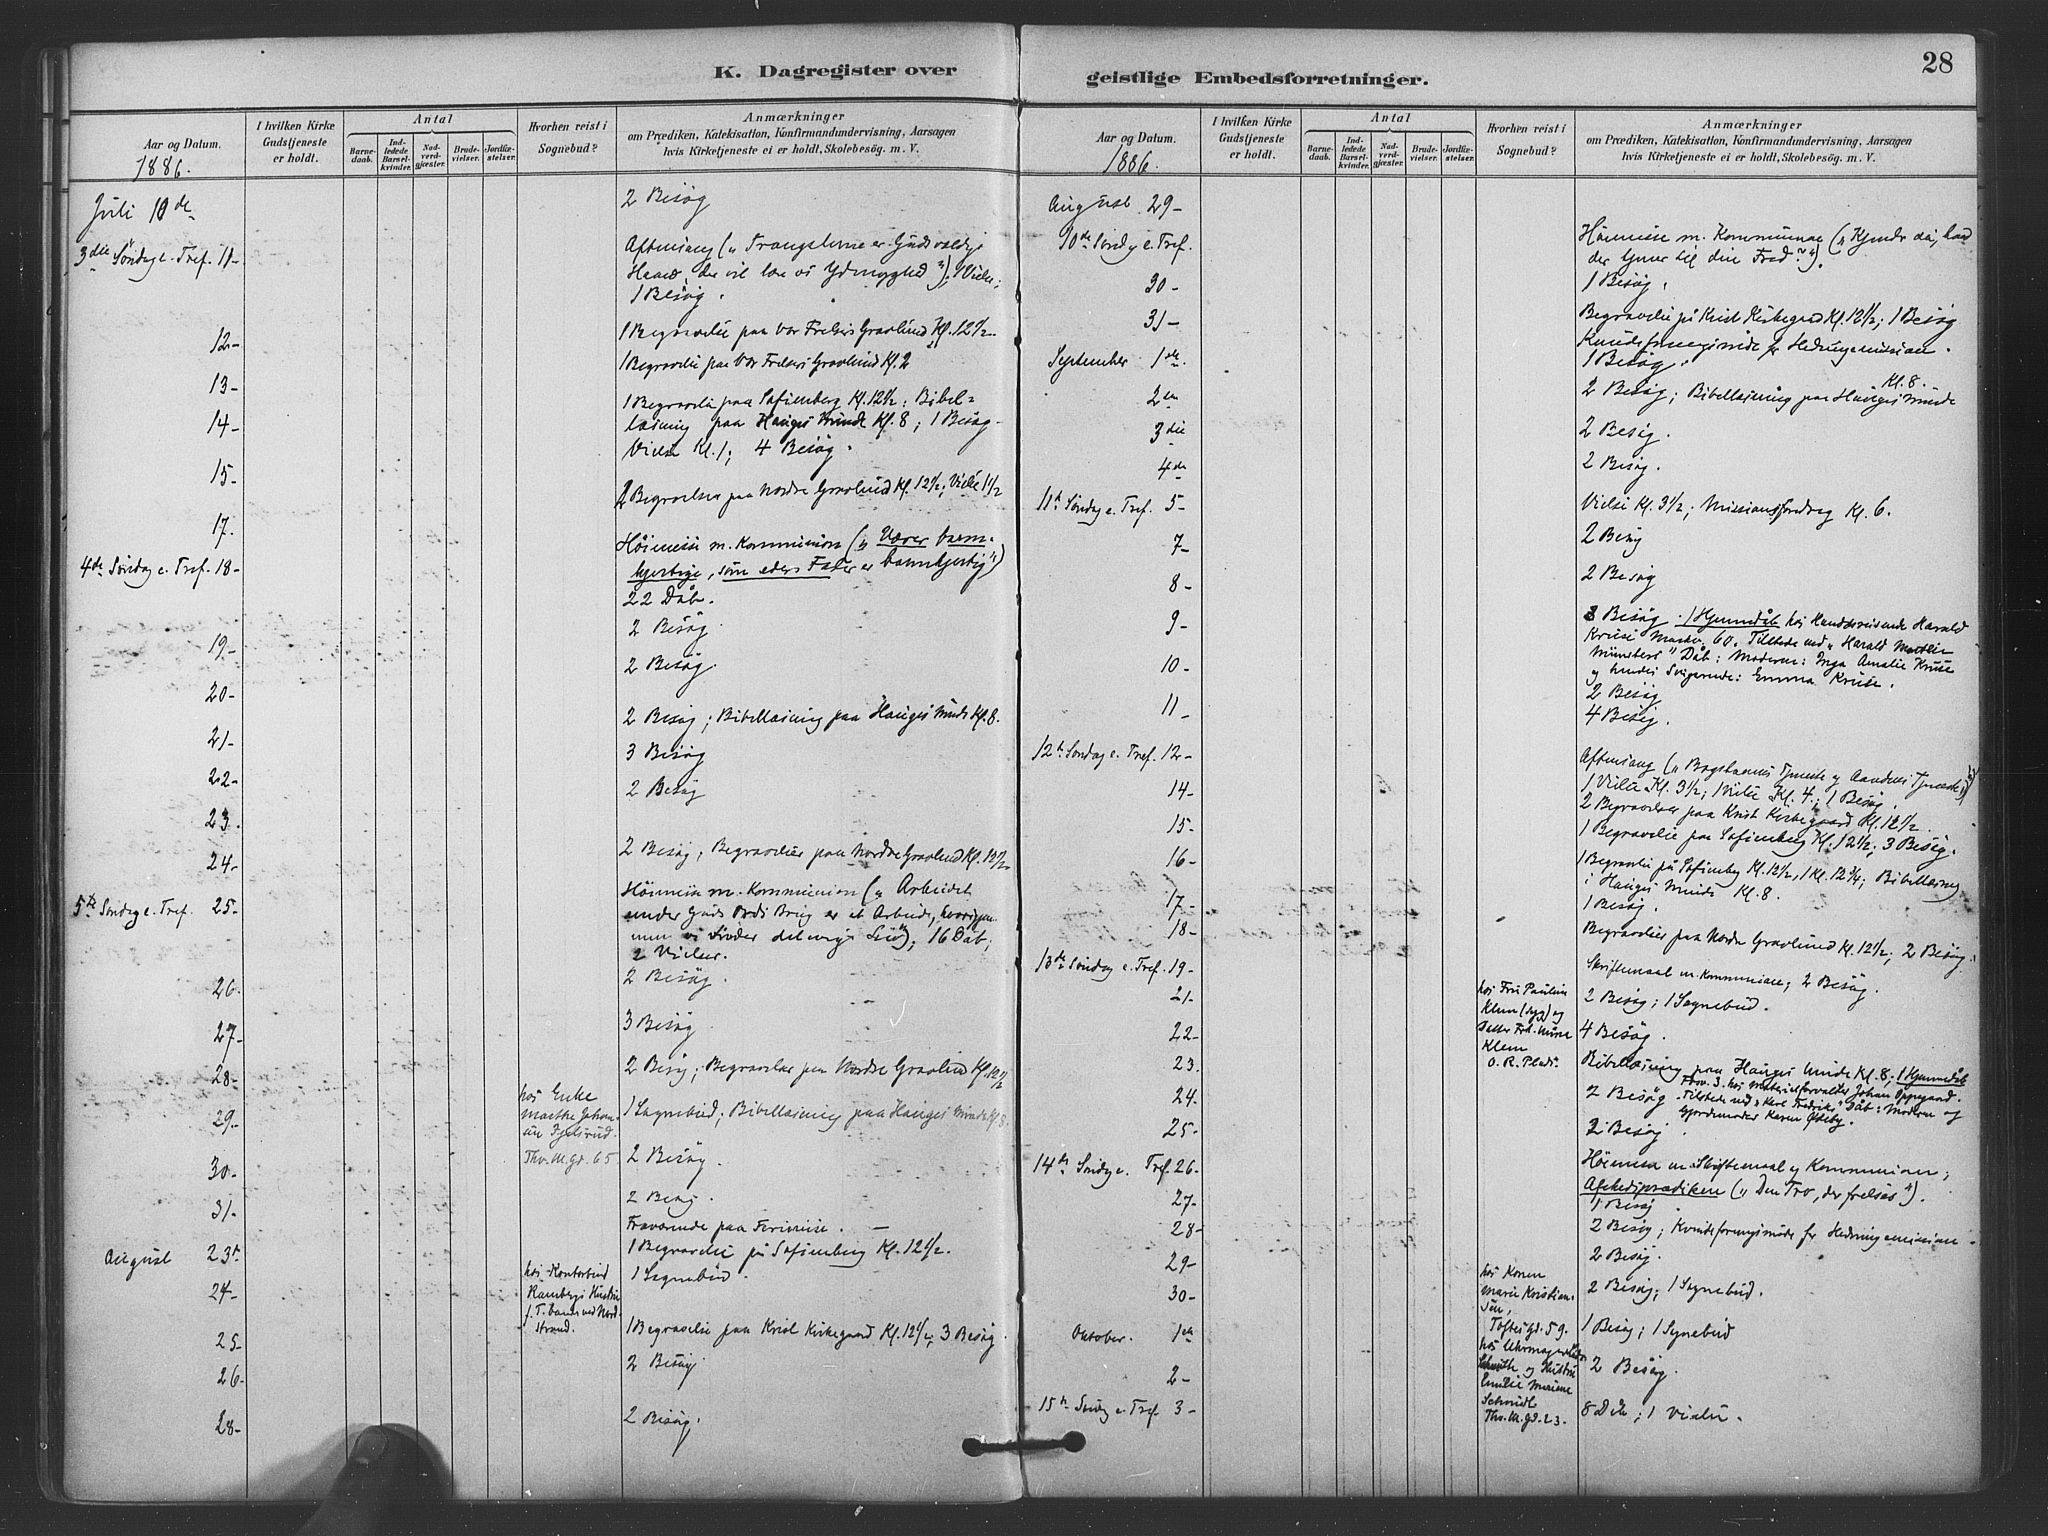 K. Dagregister over
Aar og Datum.
I hvilken Kirke Gudstjeneste er holdt.
Antal
Barnedaab.
Indledede Barselkvinder.
Nadverdgjæster.
Brudevielser.
Jordfæstelser.
Hvorhen reist i Sognebud?
Anmærkninger
om Prædiken, Katekisation, Konfirmandundervisning, Aarsagen
hvis Kirketjeneste ei er holdt, Skolebesög m. V.
1886.
Juli 10de
2 Besøg
3die Søndag e. Tref. 11-
Aftensang („Trangslerne er Guds
Haand der vil lære os Ydmyghed"); 1 Vielse;
1 Besøg.
12-
1 Begravelse paa Vor Frelsers Gravlund Kl. 12½.
13-
1 Begravelse paa Vor Frelsers Gravlund Kl. 2
14-
1 Begravelse paa Sofienberg Kl. 12½; Bibel-
læsning paa Hauges Minde Kl. 8; 1 Besøg.
15-
Vielse Kl. 1; 4 Besøg.
17.
2 Begravelser paa Nordre Gravlund Kl. 12½; Vielse 1½
4de Søndag e. Tref. 18-
Høimesse m. Kommunion („Værer barm-
hjertige, som eders Fader er barmhjertig")
22 Dåb.
19-
2 Besøg
20-
2 Besøg.
21-
2 Besøg; Bibellæsning paa Hauges Minde Kl. 8.
22-
3 Besøg
23.
2 Besøg
24-
2 Besøg; Begravelser paa Nordre Gravlund Kl. 12½
5te Søndag e. Tref. 25-
Høimesse m. Kommunion („Arbeidet
under Guds Ords Brug er et Arbeide, hvorigjen-
nem vi finder det evige); 16 Dåb;
2 Vielser.
26.
2 Besøg.
27-
3 Besøg
28-
2 Besøg; Begravelser paa Nordre Gravlund Kl. 12½
29-
hos Enke
Marthe Johan-
sen Fjelsrud.
Thv. M. Gd. 65
1 Sognebud; Bibellæsning paa Hauges Minde Kl. 8.
30-
2 Besøg.
31-
2 Besøg.
Fraværende paa Ferireise. —
August 23d
1 Begravelse på Sofienberg Kl. 12½.
24-
hos Kontorbud
Rambergs Hustru
ved Nord-
strand.
1 Sognebud.
25-
1 Begravelse paa Krist Kirkegaard Kl. 12½; 3 Besøg
26-
2 Besøg.
28-
2 Besøg.
geistlige Embedsforretninger.
28
Aar og Datum.
I hvilken Kirke Gudstjeneste er holdt.
Antal
Barnedaab.
Indledede Barselkvinder.
Nadverdgjæster.
Brudevielser.
Jordfæstelser.
Hvorhen reist i Sognebud?
Anmærkninger
om Prædiken, Katekisation, Konfirmandundervisning, Aarsagen
hvis Kirketjeneste ei er holdt, Skolebesög m. V.
1886.
August 29-
10de Søndag e. Tref.
Høimesse m. Kommunion („Kjender du, hvad
der tjener til din Fred?").
30-
1 Besøg.
31-
Begravelse på Krist Kirkegaard Kl. 12½; 1 Besøg
Kvindeforeningsmøde for Hedningemissionen.
September 1ste
1 Besøg.
2den
2 Besøg; Bibellæsning paa Hauges Minde Kl. 8.
3die
2 Besøg.
4de
2 Besøg.
11te Søndag e. Tref. 5-
Vielse Kl. 3½; Missionsforedrag Kl. 6.
7-
2 Besøg
8-
2 Besøg
9-
3 Besøg. 1 Hjemmedåb hos Handelsreisende Harald
Kruse Markv. 60. Tilstede ved „Harald
Münsters" Dåb: Moderen: Inga Amalie Kruse
og hendes Svigerinde: Emma Kruse.
10-
2 Besøg
11-
4 Besøg.
12te Søndag e. Tref. 12-
Aftensang („Bogstavens Tjeneste og Aandens Tjeneste")
1 Vielse Kl. 3½; 1 Vielse Kl. 4; 1 Besøg.
14-
2 Begravelser paa Krist Kirkegaard Kl. 12½.
15-
1 Begravelse paa Sofienberg Kl. 12½; 3 Besøg.
16-
1 Begravelse på Sofienberg Kl. 12½, 1 Kl. 12¼; Bibellæsning
i Hauges Minde Kl. 8.
17-
1 Besøg.
18-
Begravelser paa Nordre Gravlund Kl. 12½; 2 Besøg.
13de Søndag e. Tref. 19-
Skriftemaal m. Kommunion; 2 Besøg.
21-
hos Fru Pauline
Klem (syg) og
Datter Frk. Mina
Klem
O. R. Plads.
2 Besøg; 1 Sognebud.
22-
4 Besøg.
23.
Bibellæsning paa Hauges Minde Kl. 8; 1 Hjemmedåb
3. hos Materialforvalter Johan Oppegaard.
Tilstede ved „Karl Fredriks" Dåb: Moderen og
Gjordemoder Karen Østeby.
24-
2 Besøg
25-
2 Besøg.
14de Søndag e. Tref. 26-
Høimesse m. Skriftemaal og Kommunion;
Afskedsprædiken („Den Tro, der frelses").
27-
1 Besøg
28-
2 Besøg; Kvindeforeningsmøde for Hedningemissionen
29-
2 Besøg.
30-
hos Konen
Marie Kristian-
sen,
Toftesgd. 59.
2 Besøg; 1 Sognebud.
Oktober. 1ste
hos Uhrmager
Schmidt og Hustru
Emilie Mariane
Schmidt
Thv. M. Gd. 23.
1 Besøg; 1 Sognebud
2-
2 Besøg.
15de Søndag e. Tref. 3-
8 Dåb; 1 Vielse.